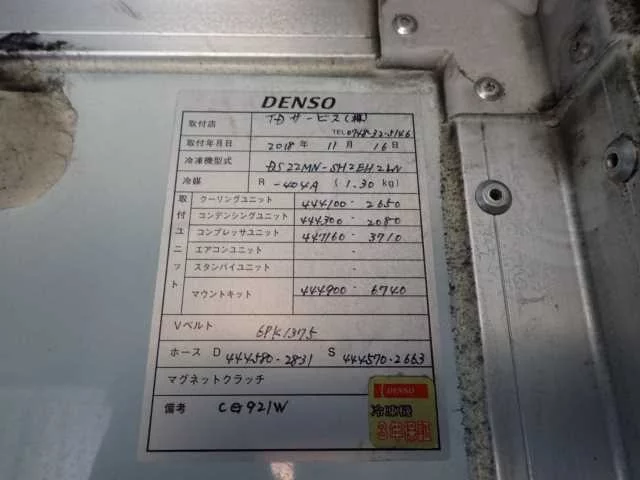 DENSO
取付店 TDサービス(株)
TEL 0948-32-5146
取付年月日 2018 年 11 月 16 日
冷凍機型式 DS22MN-SM2EH2LN
冷媒 R -404A (1.30 kg)
取付ユニット
クーリングユニット 444100-2650
コンデンシングユニット 444300-2080
コンプレッサユニット 447160-3710
エアコンユニット -
スタンバイユニット -
マウントキット 444900-6740
-
Vベルト 6PK1375
ホース D 444580-2831 S 444570-2663
マグネットクラッチ
備考 CG921W
DENSO
冷凍機
3年保証